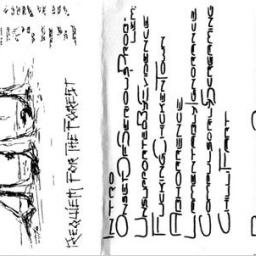 REQUIEM FOR THE FOREST
INTRO
ONSET OF SERIOUS PROB-
LEM
UNSUPPORTED BY EVIDENCE
FUCKING CHICKEN TOWN
ABHORRENCE
LAMENTABLY IGNORANCE
COMPULSORY SCREAMING
CHILLI FART